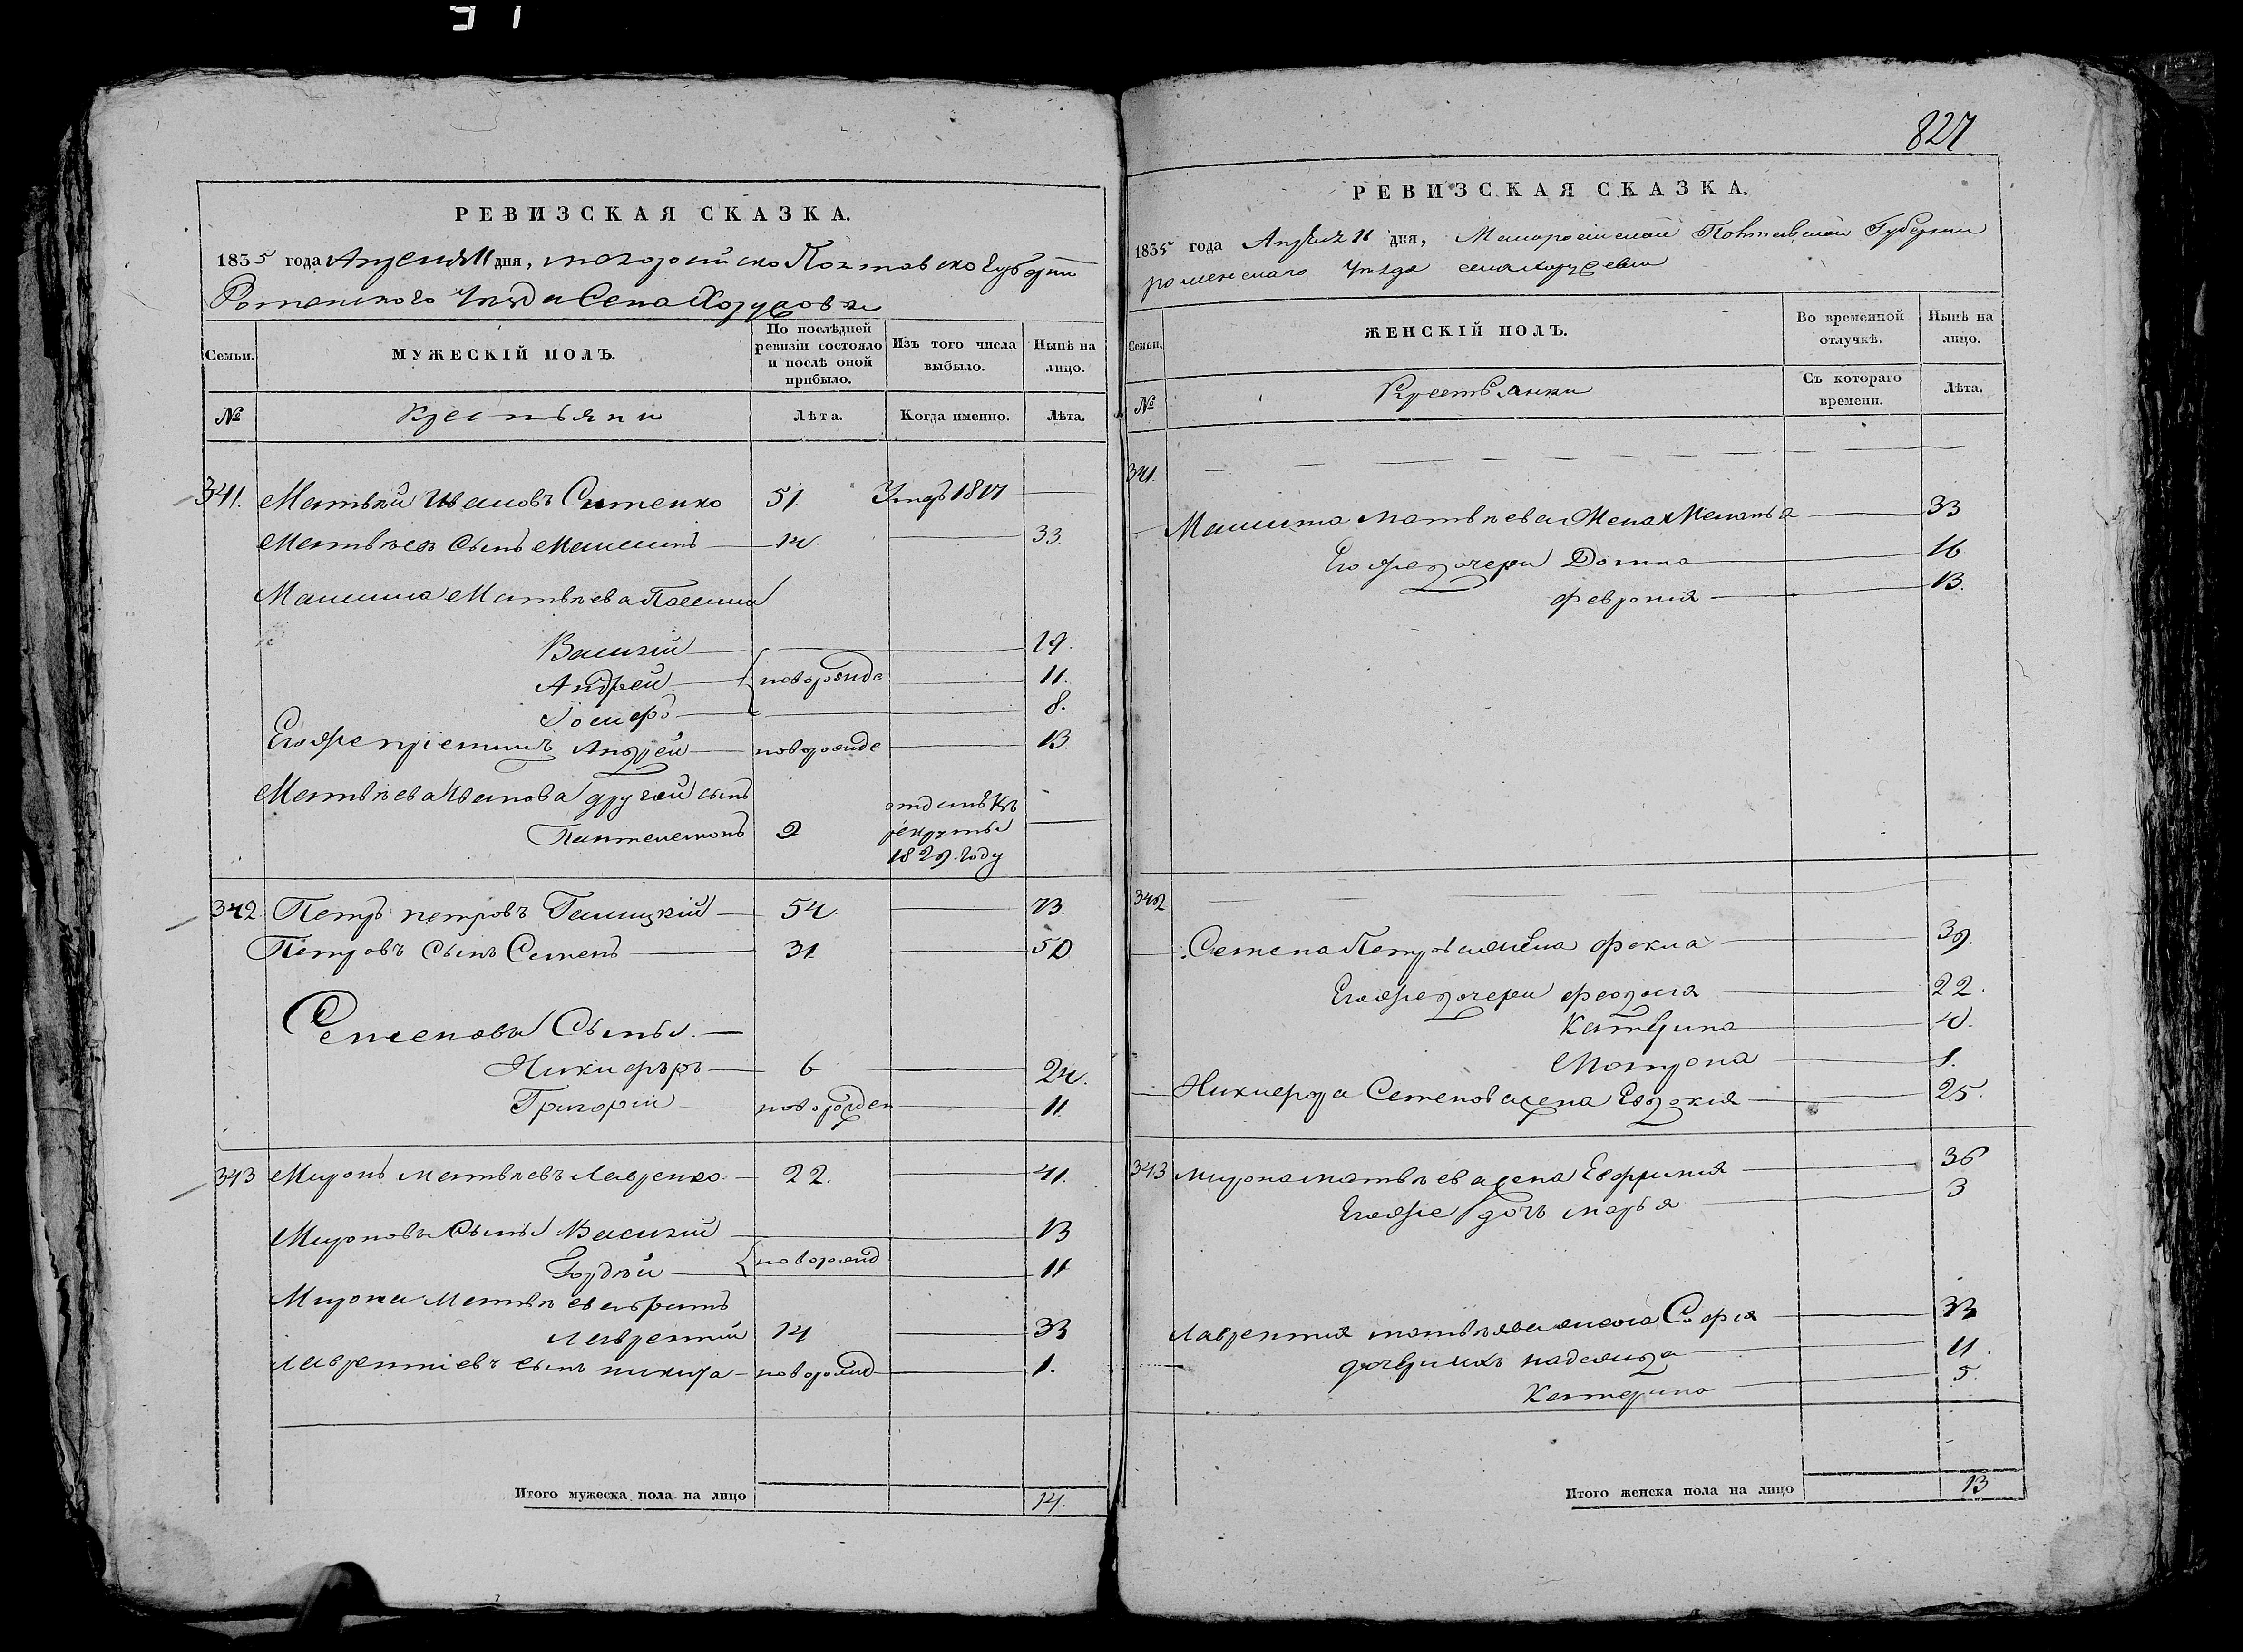 827
РЕВИЗСКАЯ СКАЗКА.
1835 года Апреля 11 дня, малоросийско Полтавско Губерни
Роменского Уезда Села Хоружовки
Семьи.
МУЖЕСКІЙ ПОЛЪ.
По послѣдней ревизіи состояло и послѣ оной прибыло.
Изъ того числа выбыло.
Нынѣ на лицо.
№
Крестьяни
Лѣта.
Когда именно.
Лѣта.
341. Матвѣй Ивановъ Ситенко 51. Умръ 1817
Матвѣевъ сынъ Максимъ 14. 33.
Максима Матвѣева
Василій 19.
Андрей новорожде 11.
Іосифъ 8.
Егожъ Андрей новорожде 13.
Матвѣева Иванова другой сынъ
Пантелемонъ 2 отданъ въ рекруты 1829. Году
342. Петръ петровъ Галицкій 54. 73.
Петровъ сынъ Семенъ 31 50
Семеновы Сыны.
Никифоръ 6 24.
Григорій новорожден 11.
343 Миронъ матвѣевъ Лавренко 22. 41.
Мироновы Сыны Василій 13
Гордѣй новорожд 11
Мирона Матвѣева братъ
Лаврентій 14 33
Лаврентіевъ сынъ никита новорожд 1.
Итого мужеска пола на лицо 14.
РЕВИЗСКАЯ СКАЗКА.
1835 года Апреля 11 дня, Малоросійской Полтавской Губерніи
роменскаго Уѣзда села хоружевки
Семьи.
ЖЕНСКІЙ ПОЛЪ.
Во временной отлучкѣ.
Нынѣ на лицо.
№
Крестьянки
Съ котораго времени.
Лѣта.
341.
Максима матвѣева Жена Меланья 33
Его же дочери Домна 16
феврония 13.
342
Семена Петрова жена фекла 39.
Егоже дочери феодосия 22.
Катерина 4.
Мотрона 1.
Никифора Семенова жена Евдокия 25.
343 Мирона матвѣева жена Евфимия 36
Егоже дочь марья 3
Лаврентия матвѣева жена Софія 33
дочери ихъ надежда 11.
Катерина 5.
Итого женска пола на лицо 13